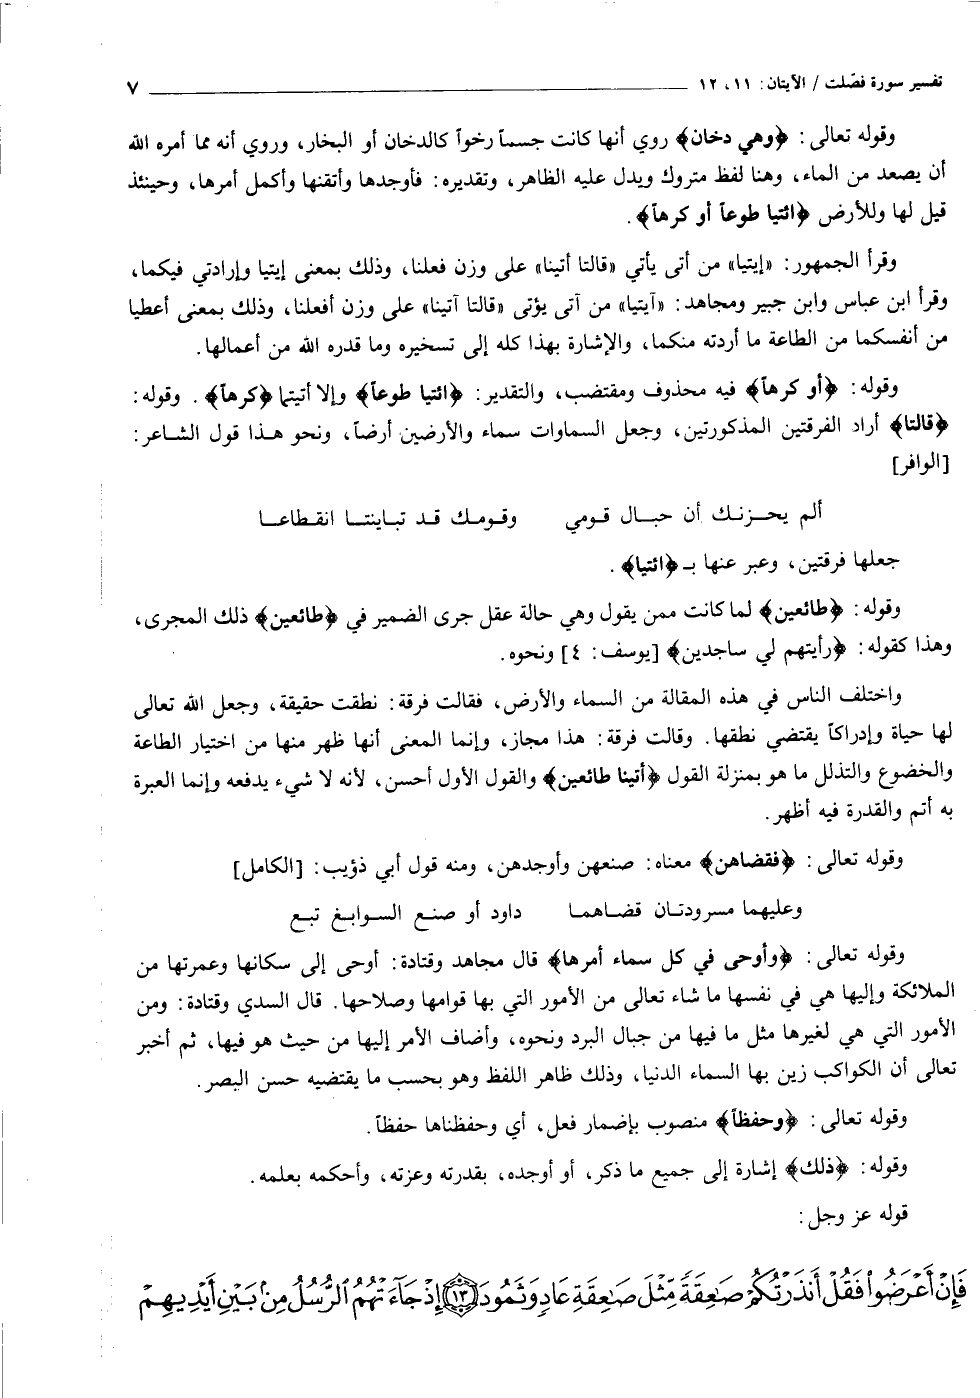 تفسير سورة فصّلت / الآيتان: ١١، ١٢ ٧
وقوله تعالى: ﴿وهي دخان﴾ روي أنها كانت جسماً رخواً كالدخان أو البخار، وروي أنه مما أمره الله
أن يصعد من الماء، وهنا لفظ متروك ويدل عليه الظاهر، وتقديره: فأوجدها وأتقنها وأكمل أمرها، وحينئذ
قيل لها وللأرض ﴿ائتيا طوعاً أو كرهاً﴾.
وقرأ الجمهور: «إيتيا» من أتى يأتي «قالتا أتينا» على وزن فعلنا، وذلك بمعنى إيتيا وإرادتي فيكما،
وقرأ ابن عباس وابن جبير ومجاهد: «آيتيا» من آتى يؤتى «قالتا آتينا» على وزن أفعلنا، وذلك بمعنى أعطيا
من أنفسكما من الطاعة ما أردته منكما، والإشارة بهذا كله إلى تسخيره وما قدره الله من أعمالها.
وقوله: ﴿أو كرهاً﴾ فيه محذوف ومقتضب، والتقدير: ﴿ائتيا طوعاً﴾ وإلا أتيتما ﴿كرهاً﴾. وقوله:
﴿قالتا﴾ أراد الفرقتين المذكورتين، وجعل السماوات سماء والأرضين أرضاً، ونحو هذا قول الشاعر:
[الوافر]
ألم يحزنك أن حبال قومي وقومك قد تباينتا انقطاعا
جعلها فرقتين، وعبر عنها بـ ﴿ائتيا﴾.
وقوله: ﴿طائعين﴾ لما كانت ممن يقول وهي حالة عقل جرى الضمير في ﴿طائعين﴾ ذلك المجرى،
وهذا كقوله: ﴿رأيتهم لي ساجدين﴾ [يوسف: ٤] ونحوه.
واختلف الناس في هذه المقالة من السماء والأرض، فقالت فرقة: نطقت حقيقة، وجعل الله تعالى
لها حياة وإدراكاً يقتضي نطقها. وقالت فرقة: هذا مجاز، وإنما المعنى أنها ظهر منها من اختيار الطاعة
والخضوع والتذلل ما هو بمنزلة القول ﴿أتينا طائعين﴾ والقول الأول أحسن، لأنه لا شيء يدفعه وإنما العبرة
به أتم والقدرة فيه أظهر.
وقوله تعالى: ﴿فقضاهن﴾ معناه: صنعهن وأوجدهن، ومنه قول أبي ذؤيب: [الكامل]
وعليهما مسرودتان قضاهما داود أو صنع السوابغ تبع
وقوله تعالى: ﴿وأوحى في كل سماء أمرها﴾ قال مجاهد وقتادة: أوحى إلى سكانها وعمرتها من
الملائكة وإليها هي في نفسها ما شاء تعالى من الأمور التي بها قوامها وصلاحها. قال السدي وقتادة: ومن
الأمور التي هي لغيرها مثل ما فيها من جبال البرد ونحوه، وأضاف الأمر إليها من حيث هو فيها، ثم أخبر
تعالى أن الكواكب زين بها السماء الدنيا، وذلك ظاهر اللفظ وهو بحسب ما يقتضيه حسن البصر.
وقوله تعالى: ﴿وحفظاً﴾ منصوب بإضمار فعل، أي وحفظناها حفظاً.
وقوله: ﴿ذلك﴾ إشارة إلى جميع ما ذكر، أو أوجده، بقدرته وعزته، وأحكمه بعلمه.
قوله عز وجل:
فَإِنْ أَعْرَضُوا فَقُلْ أَنذَرْتُكُمْ صَٰعِقَةً مِّثْلَ صَٰعِقَةِ عَادٍ وَثَمُودَ ۝١٣ إِذْ جَآءَتْهُمُ ٱلرُّسُلُ مِنۢ بَيْنِ أَيْدِيهِمْ